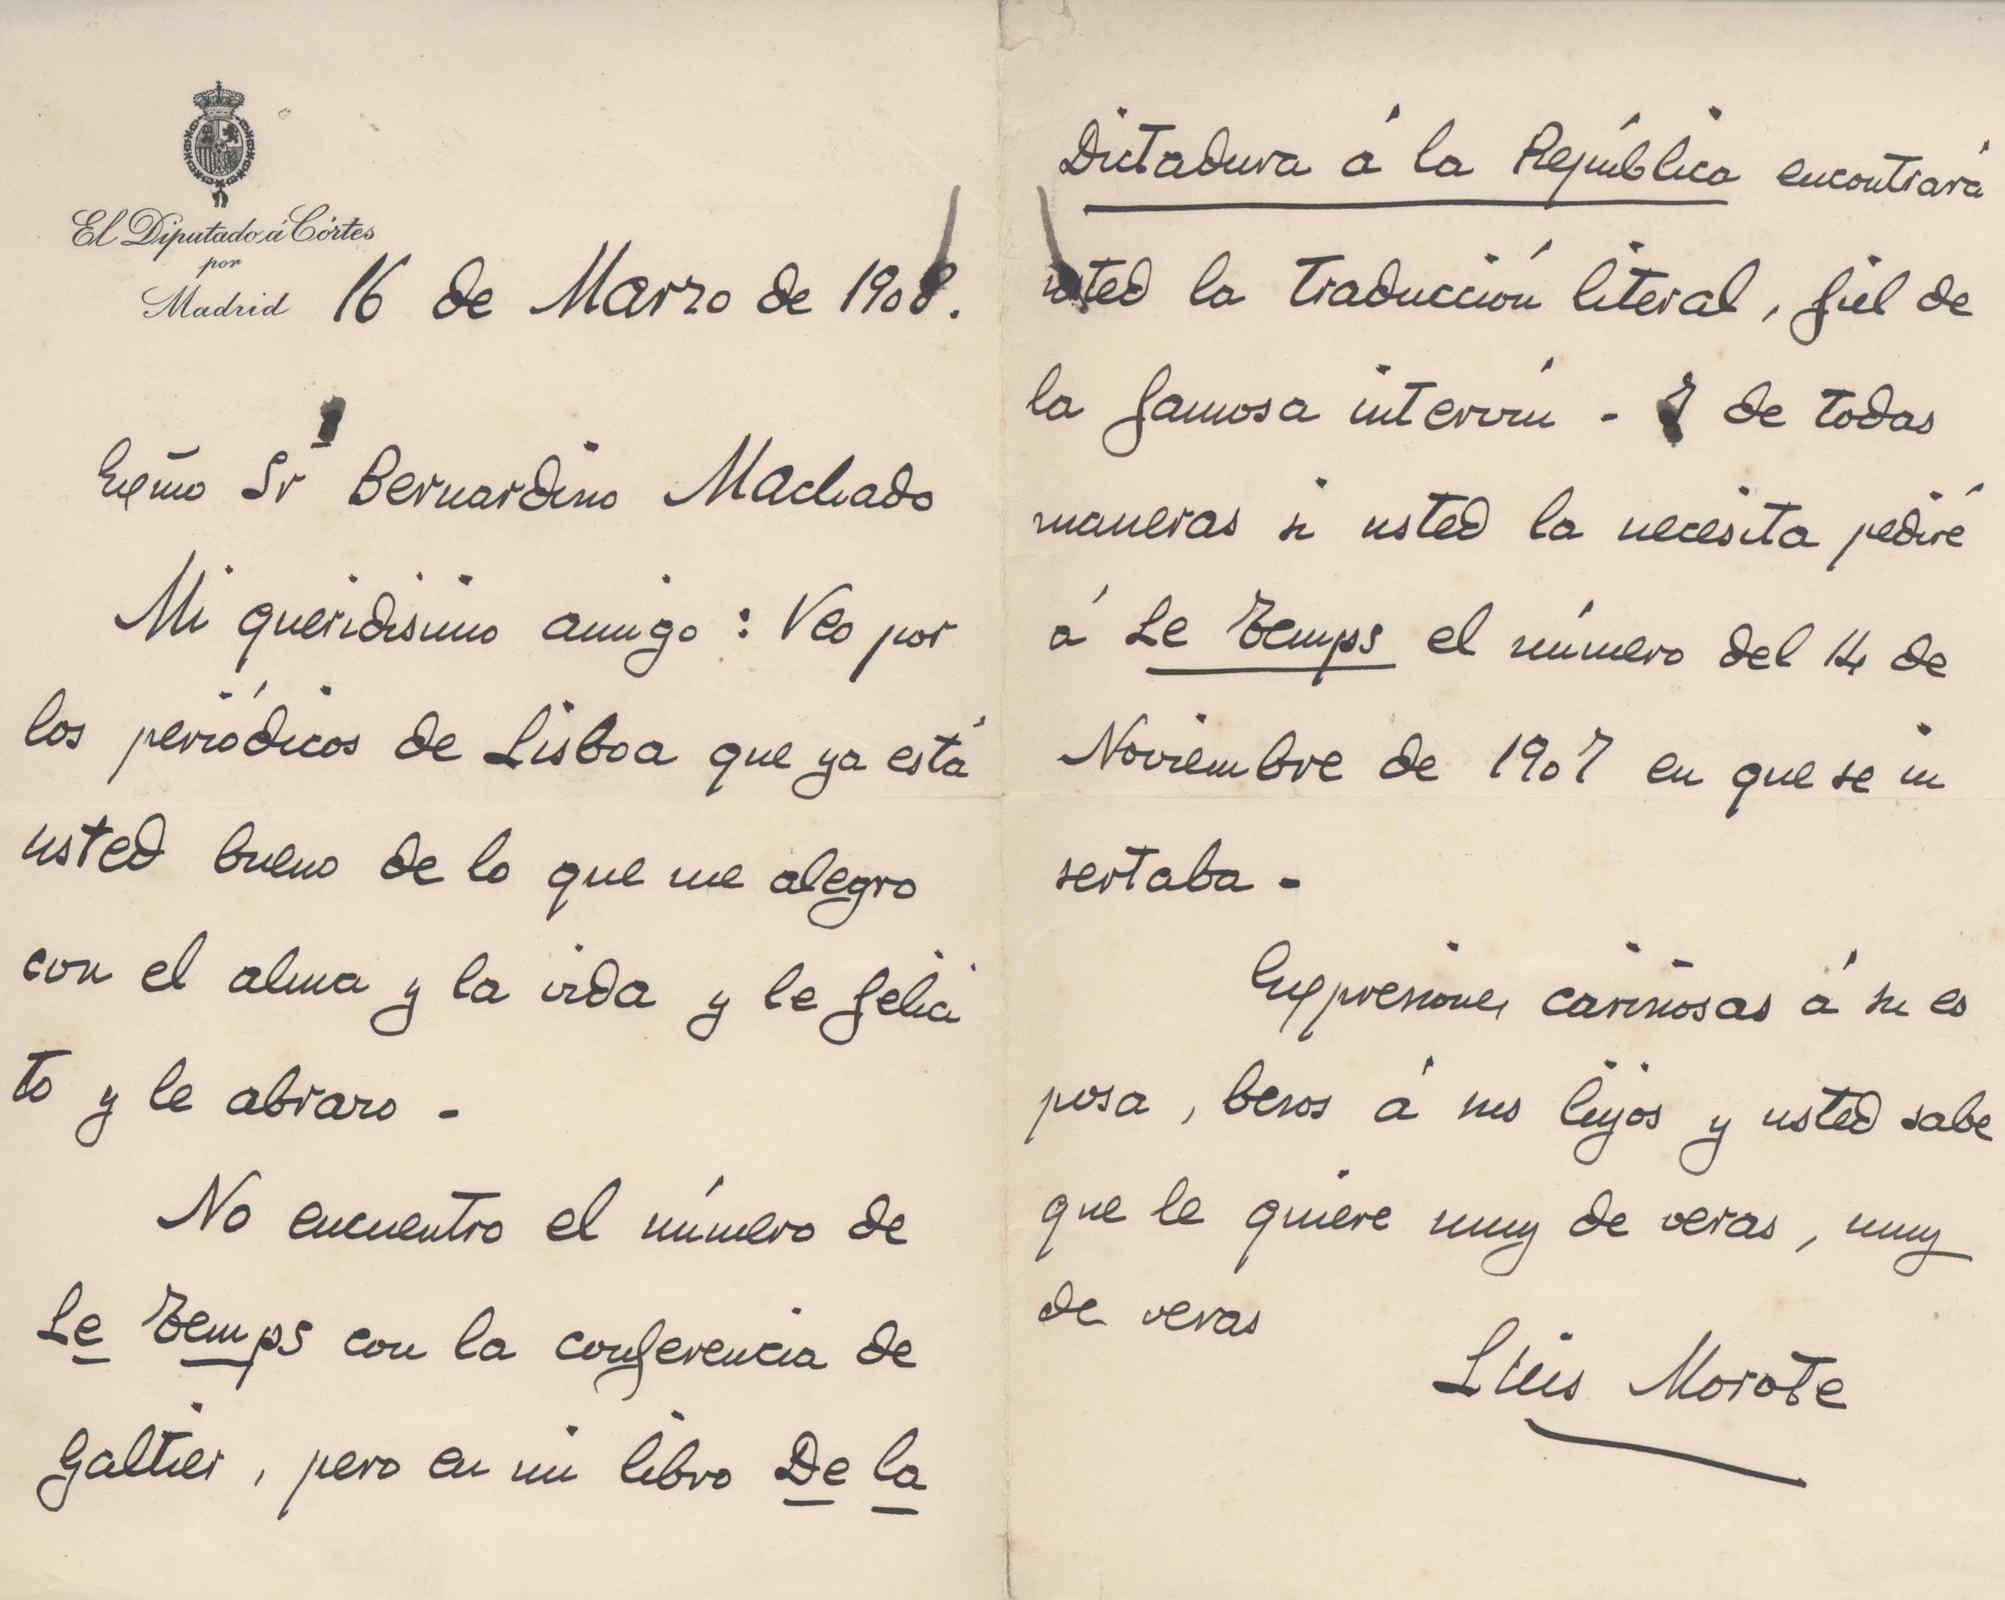 El Diputado á Córtes
por
Madrid
16 de Marzo de 1908.
Exmo Sr Bernardino Machado
Mi queridisimo amigo: Veo por
los periódicos de Lisboa que ya está
usted bueno de lo que me alegro
con el alma y la vida y le felici
to y le abrazo -
No encuentro el número de
Le Temps con la conferencia de
Galtier, pero en mi libro De la
Dictadura á la República encontrará
usted la traducción literal, fiel de
la famosa interviú - Y de todas
maneras si usted la necesita pediré
á Le Temps el número del 14 de
Noviembre de 1907 en que se in
sertaba -
Expresiones cariñosas á su es
posa, besos á sus hijos y usted sabe
que le quiere muy de veras, muy
de veras
Luis Morote